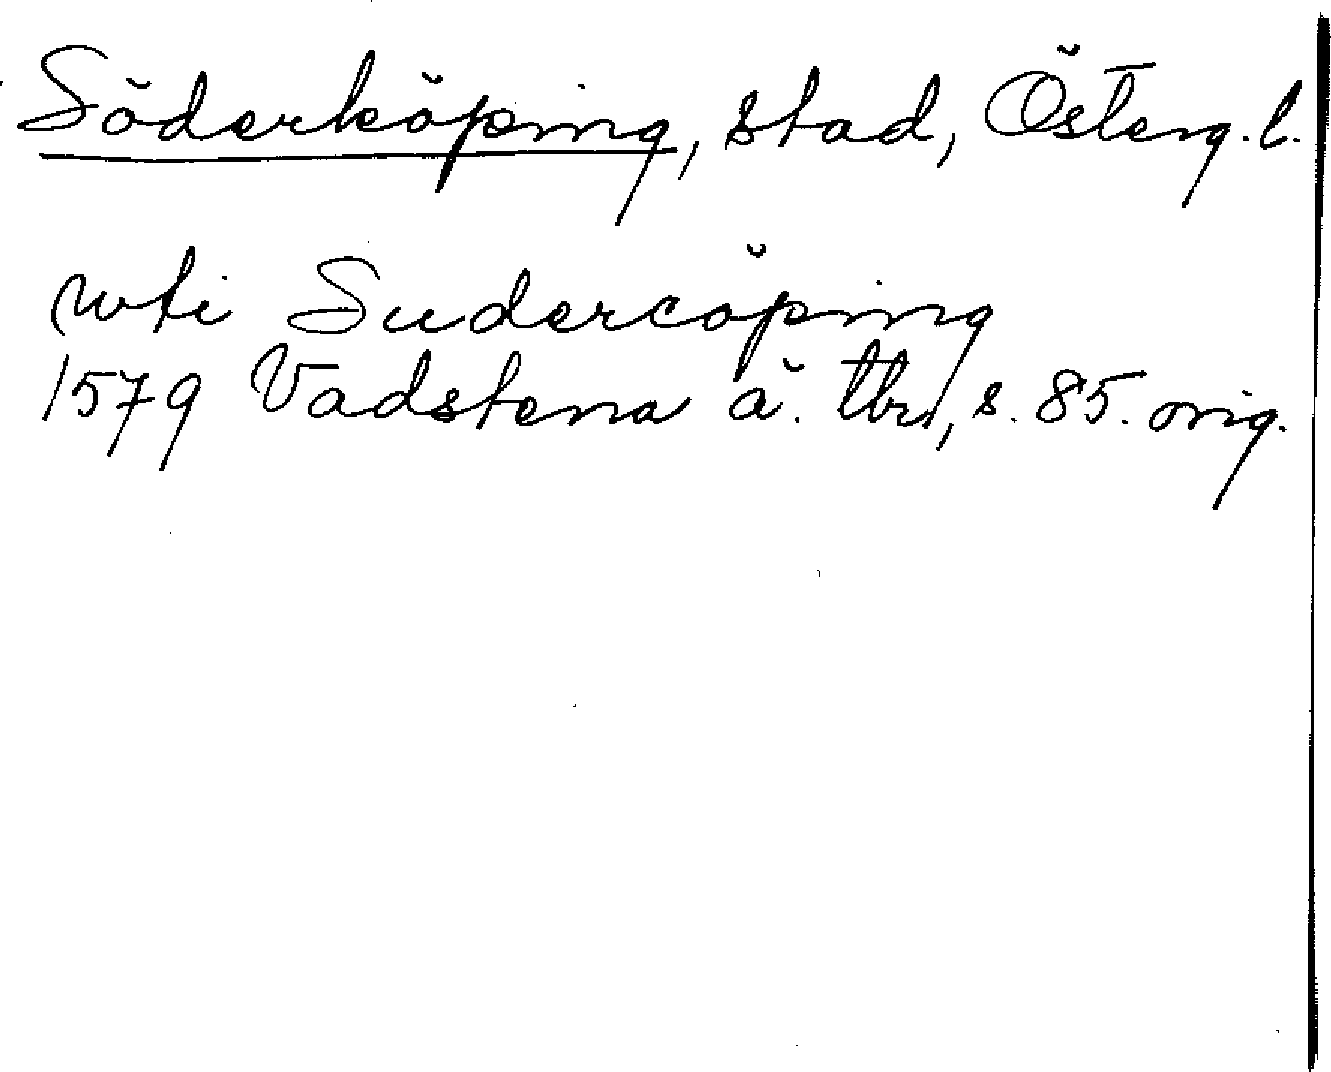 Söderköping, stad, Österg. l.
wti Sudercöping
1579 Vadstena ä. tbr, s. 85. orig.